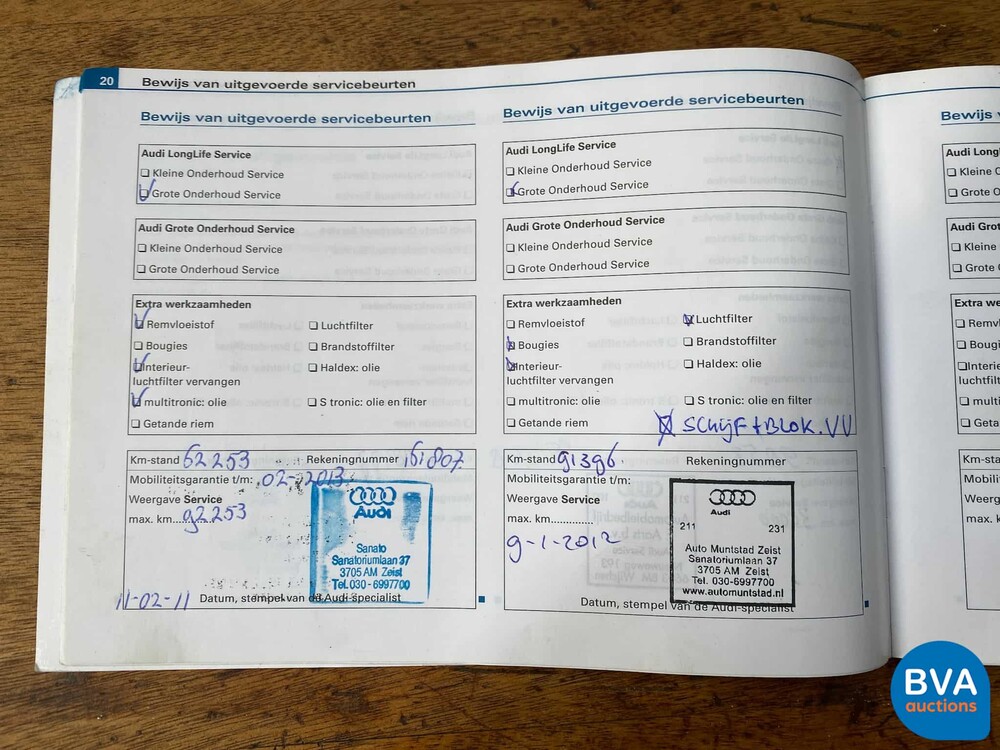 20 Bewijs van uitgevoerde servicebeurten
Bewijs van uitgevoerde servicebeurten
Audi LongLife Service
Kleine Onderhoud Service
Grote Onderhoud Service
Audi Grote Onderhoud Service
Kleine Onderhoud Service
Grote Onderhoud Service
Extra werkzaamheden
Remvloeistof
Luchtfilter
Bougies
Brandstoffilter
Interieur-
luchtfilter vervangen
Haldex: olie
multitronic: olie
S tronic: olie en filter
Getande riem
Km-stand 62253 Rekeningnummer 161807
Mobiliteitsgarantie t/m: 02-2013
Weergave Service
max. km.... 92253
Audi
Sanato
Sanatoriumlaan 37
3705 AM Zeist
Tel. 030-6997700
11-02-11 Datum, stempel van de Audi-specialist
Bewijs van uitgevoerde servicebeurten
Audi LongLife Service
Kleine Onderhoud Service
Grote Onderhoud Service
Audi Grote Onderhoud Service
Kleine Onderhoud Service
Grote Onderhoud Service
Extra werkzaamheden
Remvloeistof
Luchtfilter
Bougies
Brandstoffilter
Interieur-
luchtfilter vervangen
Haldex: olie
multitronic: olie
S tronic: olie en filter
Getande riem
SCHIJF + BLOK. VV
Km-stand 91396. Rekeningnummer
Mobiliteitsgarantie t/m:
Weergave Service
max. km..............
9-1-2012
Audi
211 231
Auto Muntstad Zeist
Sanatoriumlaan 37
3705 AM Zeist
Tel. 030-6997700
www.automuntstad.nl
Datum, stempel van de Audi-specialist
Bewijs v
Audi Long
Kleine O
Grote O
Audi Grot
Kleine
Grote O
Extra we
Remvlo
Bougie
Interie
luchtfilte
multit
Getan
Km-stan
Mobilite
Weerga
max. k
BVA
auctions